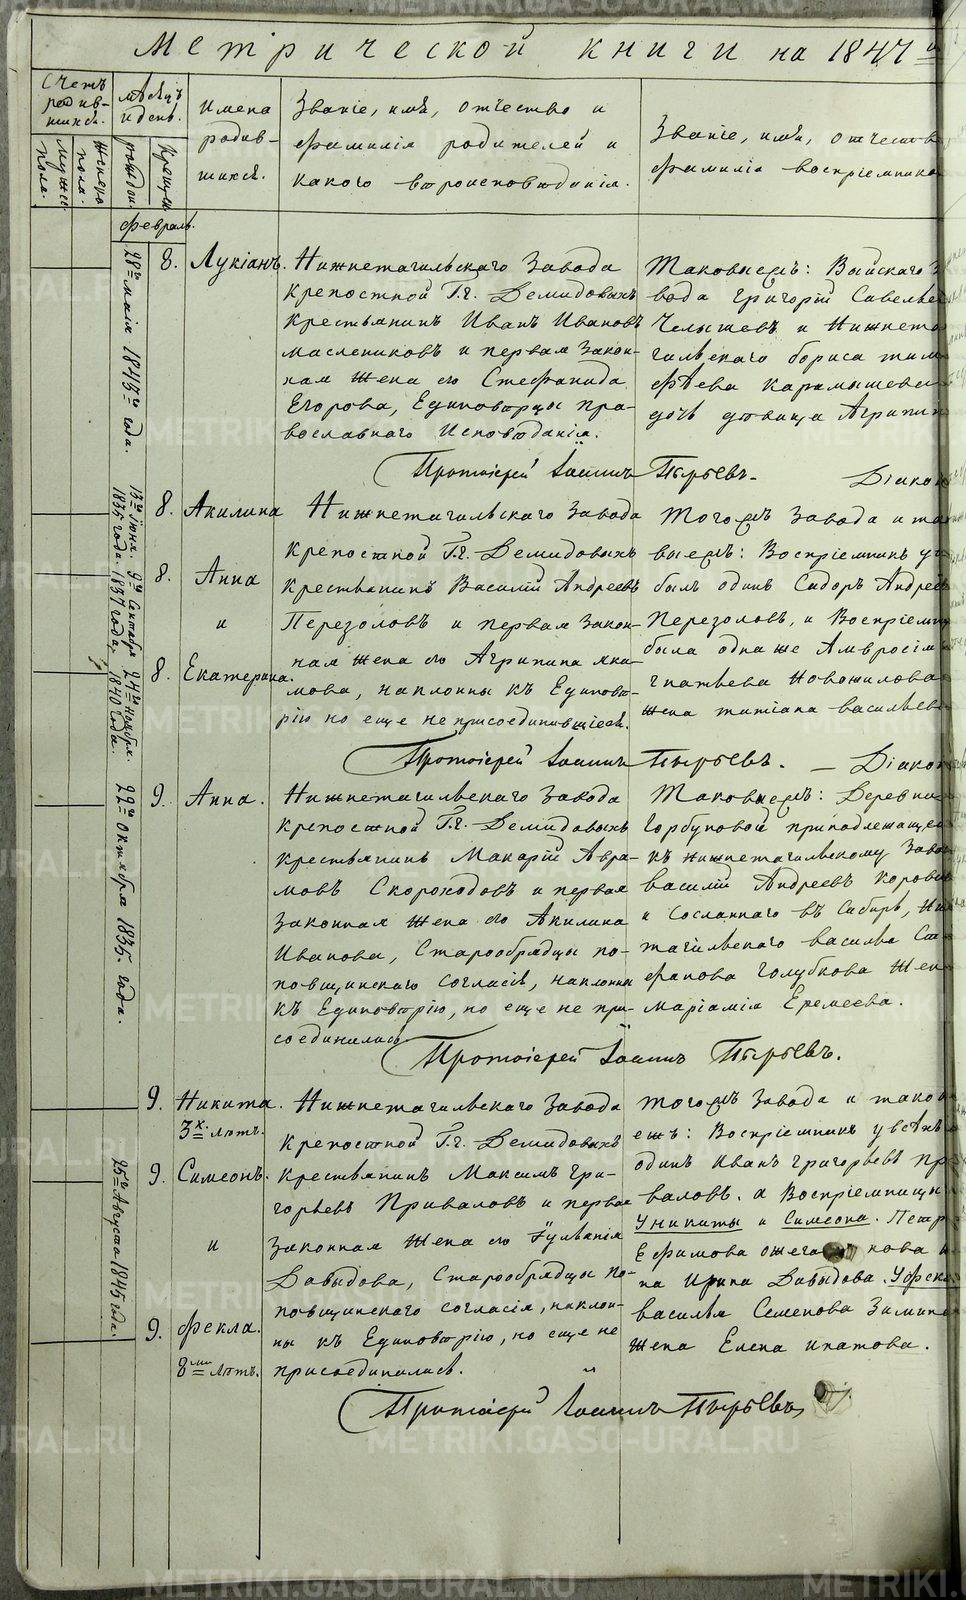 Метрической книги на 1847й
Счетъ родив-шихся.
Мужес. пола.
Женско пола.
мѣсяцъ и день.
рожден.
крещен.
имена родив-шихся.
Званіе, имя, отчество и
фамилія родителей и
какого вѣроисповѣданія.
Званіе, имя, отчеств
фамилія воспріемника
февраль.
28го маія 1845го года.
8.
Лукіанъ.
Нижнетагильскаго Завода
крепостной Г.г. Демидовыхъ
крестьянинъ Иванъ Ивановъ
Маслениковъ и первая закон-
ная жена его Стефанида
Егорова, Единовѣрцы пра-
вославнаго Исповѣданія.
Таковыежъ: Выйскаго З
вода Григорій Савельев
Челышевъ и Нижнета
гильскаго бориса тим
фѣева Карамышева
дочь дѣвица Агрипин
Протоіерей Іоаннъ Пырьевъ. Діакон
13го Іюня. 1835 года.
9го Сентября 1837 года,
24го Ноября. 1840 года.
8. Акилина
8. Анна
и
8. Екатерина.
Нижнетагильскаго Завода
крепостной Г.г. Демидовыхъ
крестьянинъ Василій Андреевъ
Перезоловъ и первая закон-
ная жена его Агрипина Яки-
мова, наклонны къ Единовѣ-
рію но еще не присоединившіеся.
Тогожъ Завода и та
выежъ: Воспріемникъ у
былъ одинъ Сидоръ Андреев
Перезоловъ, и Воспріемни
была однаже Амвросія
гнатьева Новожилова
жена татіана васильев
Протоіерей Іоаннъ Пырьевъ. — Діакон
22го Октября 1835. года.
9. Анна.
Нижнетагильскаго Завода
крепостной Г.г. Демидовыхъ
крестьянинъ Макарій Авра-
мовъ Скороходовъ и первая
законная жена его Акилина
Иванова, Старообрядцы по-
повщинскаго согласія, наклонны
къ Единовѣрію, но еще не при-
соединились
Таковыежъ: Деревни
Горбуновой принадлежащей
къ нижнетагильскому Заво
василій Андреевъ Корови
и Сосланнаго въ Сибирь, Ни
тагильскаго василья Сте
фанова Голубкова жен
Маріамія Еремеева.
Протоіерей Іоаннъ Пырьевъ.
25го Августа 1845 года.
9. Никита.
3х лѣтъ.
9. Симеонъ.
и
9. Фекла.
8ми лѣтъ.
Нижнетагильскаго Завода
крепостной Г.г. Демидовыхъ
крестьянинъ Максимъ Гри-
горьевъ Приваловъ и первая
законная жена его Іуліанія
Давыдова, Старообрядцы по-
повщинскаго согласія, наклон-
ны къ Единовѣрію, но еще не
присоединились.
Тогожъ Завода и таков
ежъ: Воспріемникъ у всѣхъ
одинъ Иванъ Григорьевъ При
валовъ. а Воспріемницы
У Никиты и Симеона. Петр
Ефимова
на Ирина Давыдова. У Феклы
василья Семенова Зимина
жена Елена Ипатова.
Протоіерей Іоаннъ Пырьевъ
METRIKI.GASO-URAL.RU